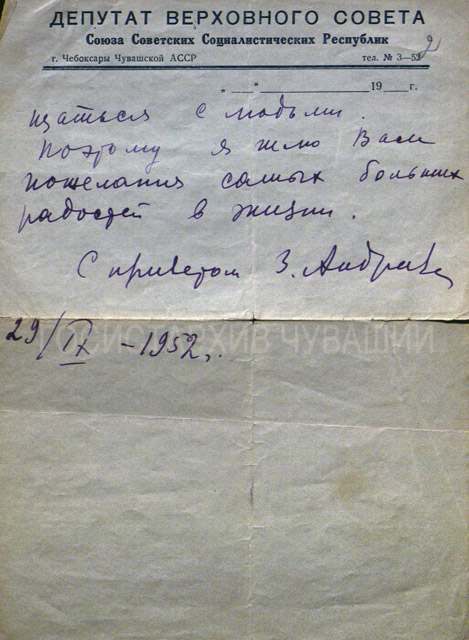 ДЕПУТАТ ВЕРХОВНОГО СОВЕТА
Союза Советских Социалистических Республик
г. Чебоксары Чувашской АССР тел. № 3—52
2
„ __ “ ____________ 19 ___ г.
щаться с людьми.
Поэтому я шлю Вам
пожелания самых больших
радостей в жизни.
С приветом З. Андреева
29/IX – 1952 г.
ГОСИСТАРХИВ ЧУВАШИИ